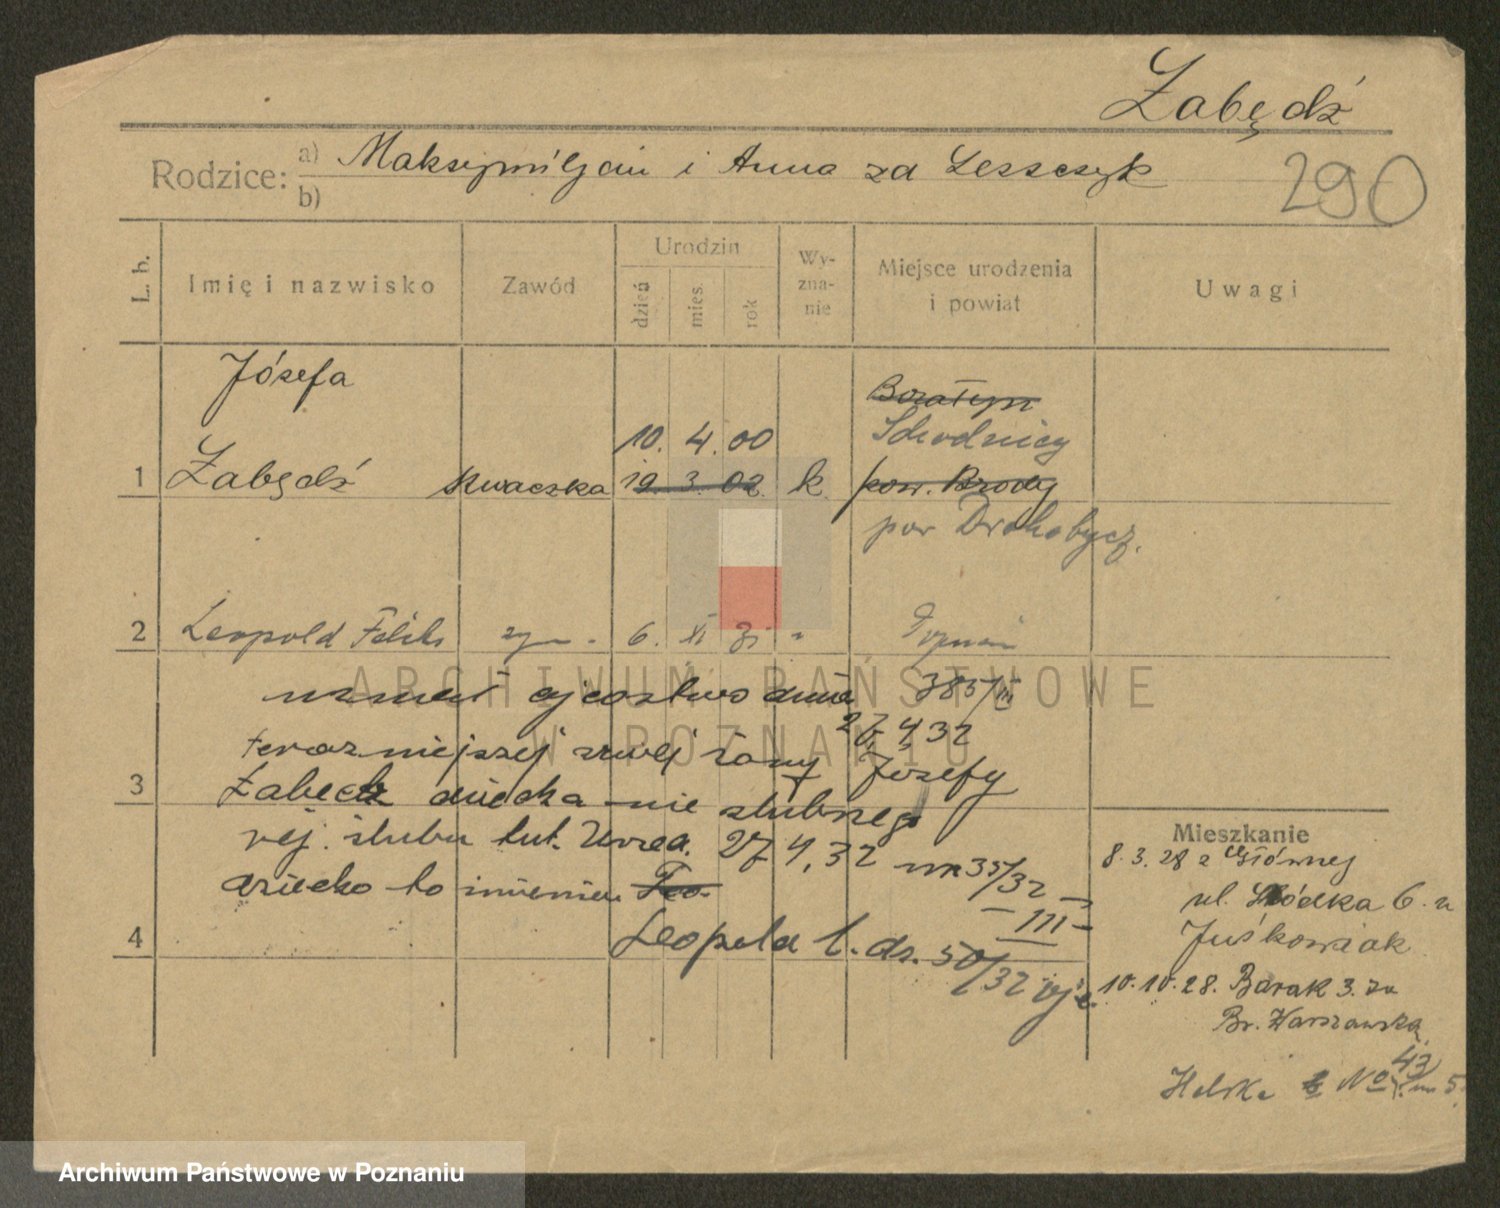 Łabędź
Rodzice: a) Maksymiljan i Anna za Leszczyk
b)
290
L. b.
Imię i nazwisko
Zawód
Urodzin
dzień
mies.
rok
Wy-
zna-
nie
Miejsce urodzenia
i powiat
Uwagi
Józefa
Boratyn
10. 4. 00
Schodnicy
1 Łabędź szwaczka 19. 3. 02 k pow. Brody
pow Drohobycz.
2 Leopold Feliks syn 6. XI 31 " Poznań
uznał ojcostwo dnia 385/III
27 4 32
teraźniejszej swej żony Józefy
3 Łabędź dziecka nie ślubnego
rej. ślubu tut. Urzęd. 27 4, 32 nr 35/32
III
dziecko to imieniem
4 Leopold l. dz. 50/32
Mieszkanie
8. 3. 28 z Głównej
ul. Łódka 6. u
Juśkowiak
10. 10. 28. Barak 3. za
Br. Warszawską
Helska No 43 m 5
ARCHIWUM PAŃSTWOWE
W POZNANIU
Archiwum Państwowe w Poznaniu